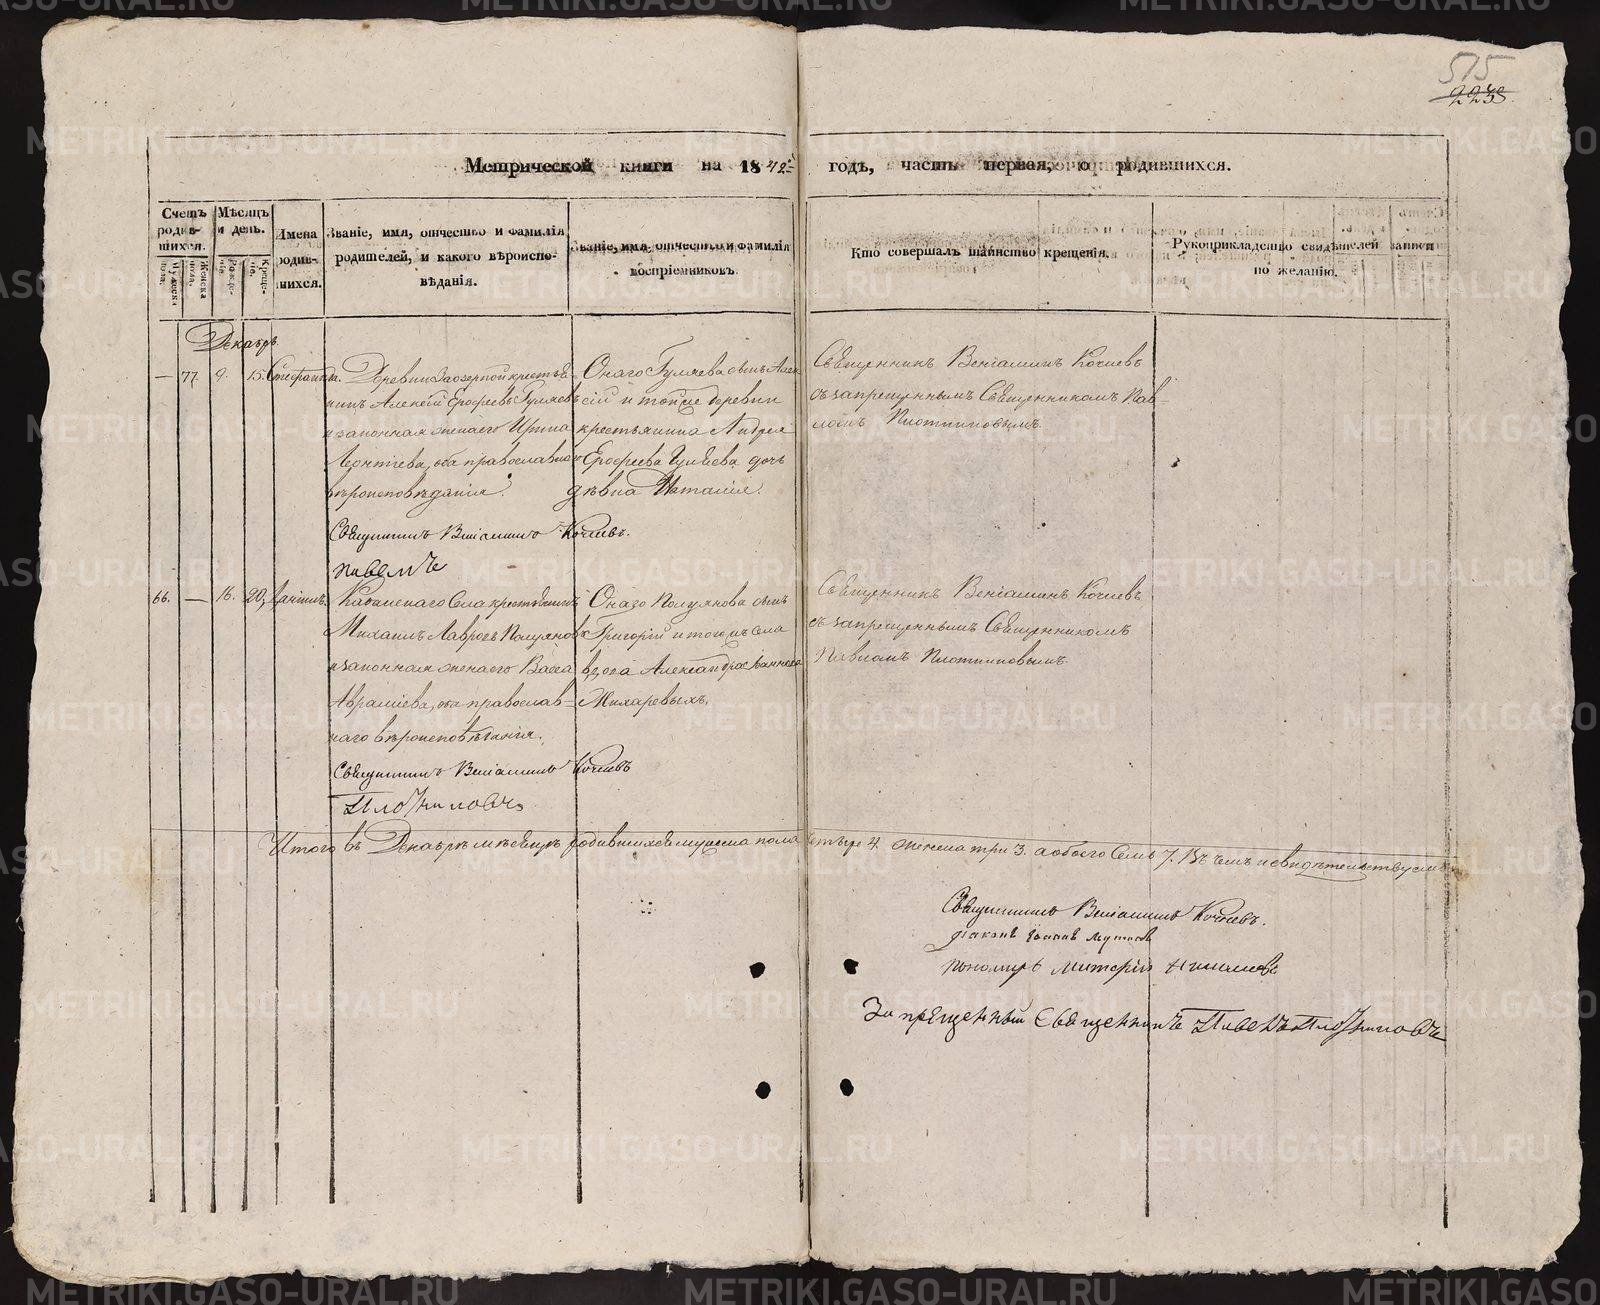 515
2238.
Метрической книги на 1842 годъ, часть первая, о родившихся.
Счетъ родившихся.
Мужеска пола.
Женска пола.
Мѣсяцъ и день.
Рожденія.
Крещенія.
Имена родившихся.
Званіе, имя, отчество и фамилія родителей, и какого вѣроисповѣданія.
Званіе, имя, отчество и фамилія воспріемниковъ.
Кто совершалъ таинство крещенія.
Рукоприкладство свидѣтелей записи по желанію.
Декабрь
— 77. 9. 15. Стефанида.
Деревни Заозерной крестья-
нинъ Алексѣй Ерофеевъ Гуляевъ
и законная жена его Ирина
Леонтіева, оба православнаго
вѣроисповѣданія.
Онаго Гуляева сынъ Алек
сій и тойже деревни
крестьянина Андрея
Ерофеева Гуляева дочь
дѣвица Наталія.
Священникъ Веніаминъ Кочневъ
съ запрещеннымъ Священникомъ Пав-
ломъ Плотниковымъ.
Священникъ Веніаминъ Кочневъ.
Павелъ
66. — 16. 20.
Села крестьянинъ
Михаилъ Лавровъ Полуяновъ
и законная жена его Васса
Авраміева, оба православ-
наго вѣроисповѣданія.
Онаго Полуянова сынъ
Григорій и того жъ села
вдова Александра
Священникъ Веніаминъ Кочневъ
съ запрещеннымъ Священникомъ
Павломъ Плотниковымъ.
Священникъ Веніаминъ Кочневъ
Плотниковъ
Итого въ Декабрѣ мѣсяцѣ родившихся мужеска пола четыре 4. женска три 3. а обоего семь 7. Въ чемъ и свидѣтельствуемъ
Священникъ Веніаминъ Кочневъ.
Діаконъ Іоаннъ
Пономарь Дмитрій
Запрещенный Священникъ Павелъ Плотниковъ
METRIKI.GASO-URAL.RU